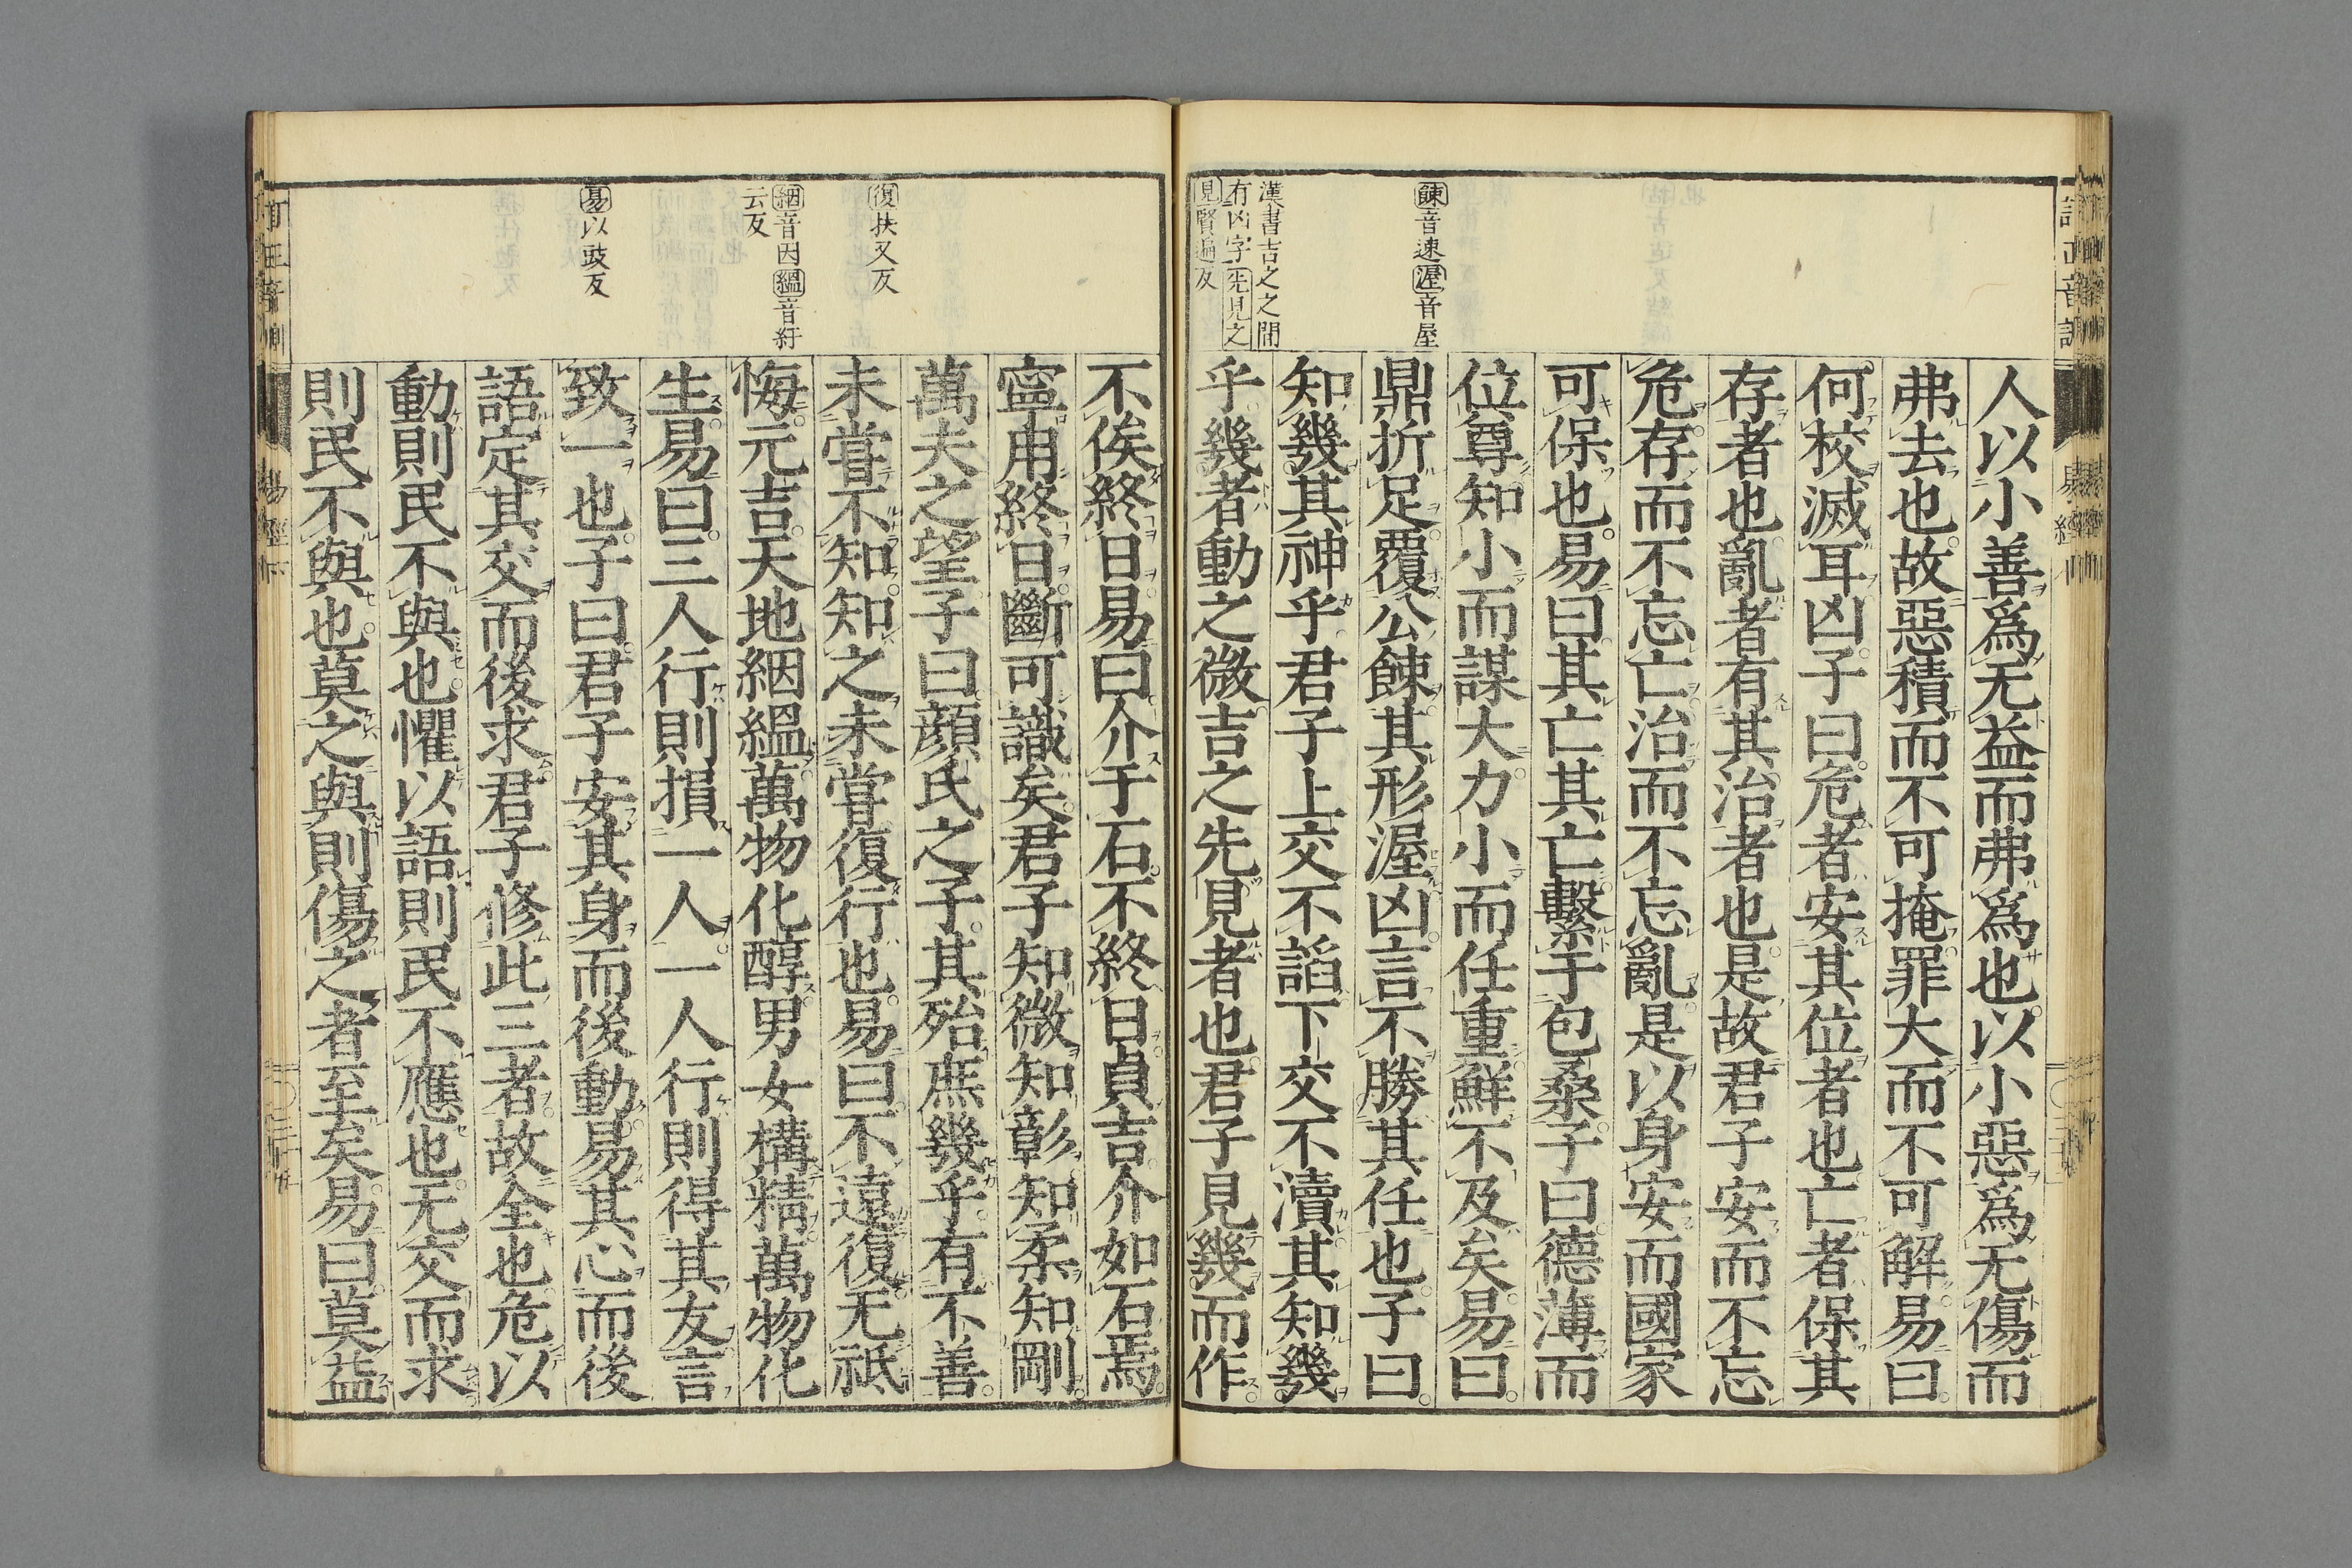 人以小善爲无益而弗爲也以小惡爲无傷而
弗去也故惡積而不可掩罪大而不可解易曰
何校滅耳凶子曰危者安其位者也亡者保其
存者也亂者有其治者也是故君子安而不忘
危存而不忘亡治而不忘亂是以身安而國家
可保也易曰其亡其亡繫于包桑子曰德薄而
位尊知小而謀大力小而任重鮮不及矣易曰
鼎折足覆公餗其形渥凶言不勝其任也子曰
知幾其神乎君子上交不諂下交不瀆其知幾
乎幾者動之微吉之先見者也君子見幾而作
餗音速渥音屋
漢書吉之之間
有凶字先見之
見賢遍反
不俟終日易曰介于石不終日貞吉介如石焉
寧用終日斷可識矣君子知微知彰知柔知剛
萬夫之望子曰顏氏之子其殆庶幾乎有不善
未嘗不知知之未嘗復行也易曰不遠復无祇
悔元吉天地絪縕萬物化醇男女構精萬物化
生易曰三人行則損一人一人行則得其友言
致一也子曰君子安其身而後動易其心而後
語定其交而後求君子修此三者故全也危以
動則民不與也懼以語則民不應也无交而求
則民不與也莫之與則傷之者至矣易曰莫益
復扶又反
絪音因縕音紆
云反
易以豉反